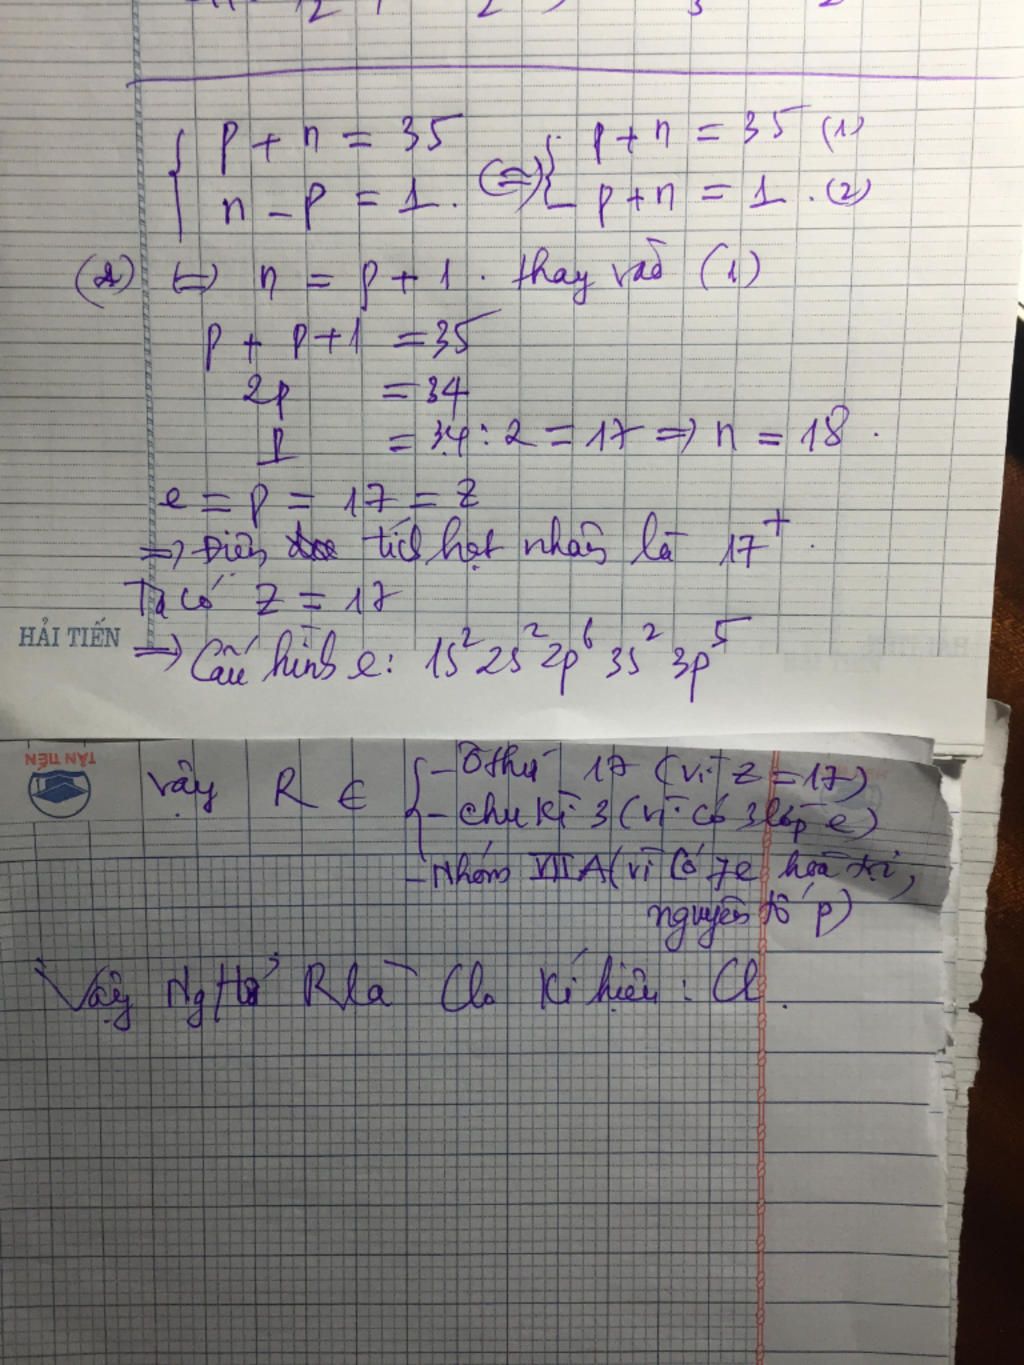 { p + n = 35 (=) { p + n = 35 (1)
n - p = 1. - p + n = 1. (2)
(2) (=) n = p + 1. thay vào (1)
p + p + 1 = 35
2p = 34
p = 34 : 2 = 17 => n = 18.
e = p = 17 = Z
=> Điện tích hạt nhân là 17+.
Ta có Z = 17
HẢI TIẾN
=> Cấu hình e: 1s² 2s² 2p⁶ 3s² 3p⁵
TÂN TIẾN
Vậy R ∈ { - Ô thứ 17 (vì Z = 17)
- Chu kì 3 (vì có 3 lớp e)
- Nhóm VIIA (vì có 7e hoá trị,
nguyên tố p)
Vậy Ng tố R là Clo kí hiệu: Cl.